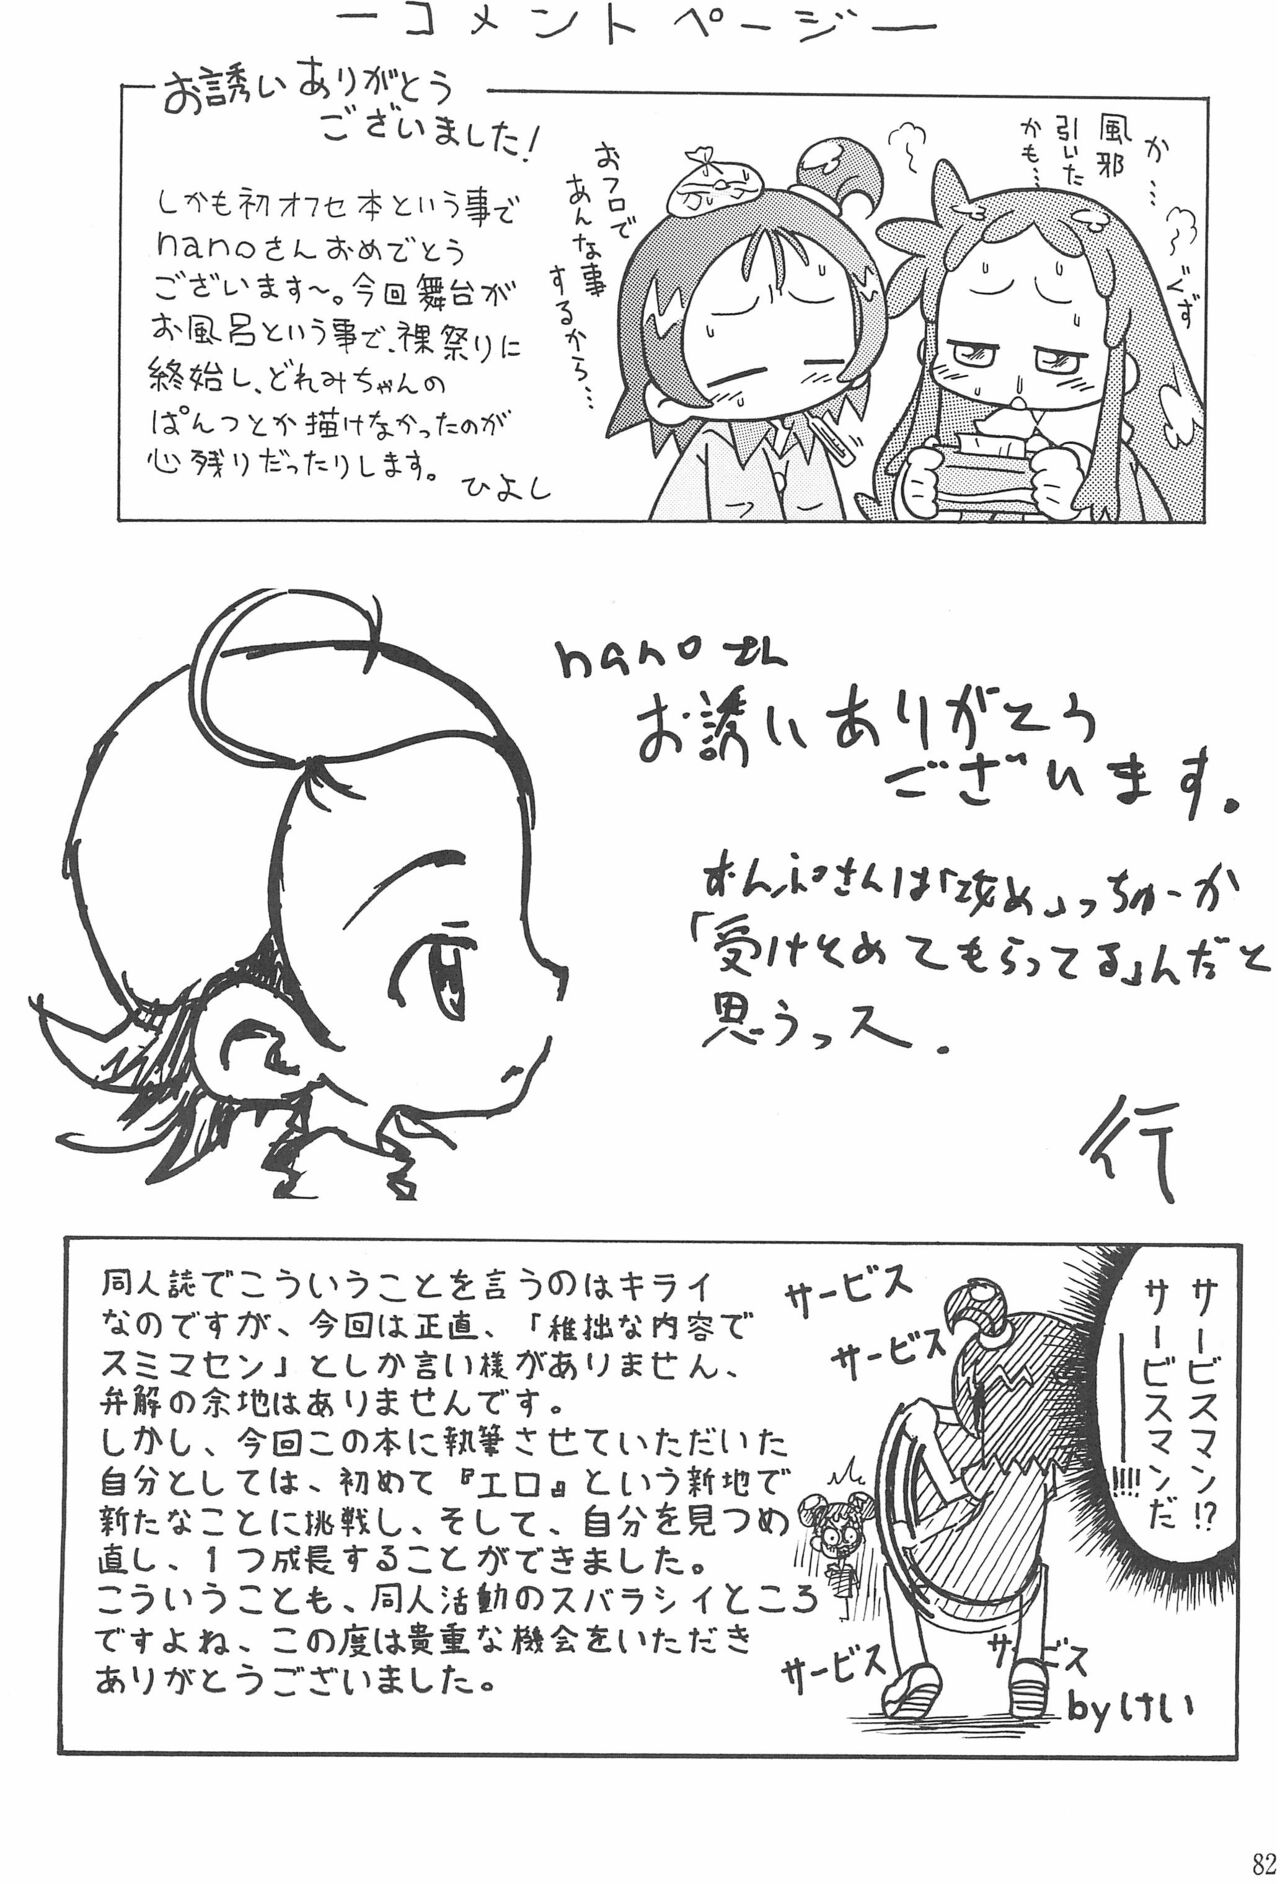 ーコメントページー
お誘いありがとう
ございました!
しかも初オフセ本という事で
nanoさんおめでとう
ございます〜。今回舞台が
お風呂という事で、裸祭りに
終始し、どれみちゃんの
ぱんつとか描けなかったのが
心残りだったりします。
ひよし
か…
風邪
引いた
かも…
ぐず
おフロで
あんな事
するから…
nanoさん
お誘いありがとう
ございます。
おんぷさんは「攻め」っちゅーか
「受けそめてもらってる」んだと
思うっス.
行
同人誌でこういうことを言うのはキライ
なのですが、今回は正直、「稚拙な内容で
スミマセン」としか言い様がありません、
弁解の余地はありませんです。
しかし、今回この本に執筆させていただいた
自分としては、初めて『エロ』という新地で
新たなことに挑戦し、そして、自分を見つめ
直し、1つ成長することができました。
こういうことも、同人活動のスバラシイところ
ですよね、この度は貴重な機会をいただき
ありがとうございました。
サービスマン!?
サービスマンだ
━━!!!!
サービス
サービス
サービス
サービス
byけい
82